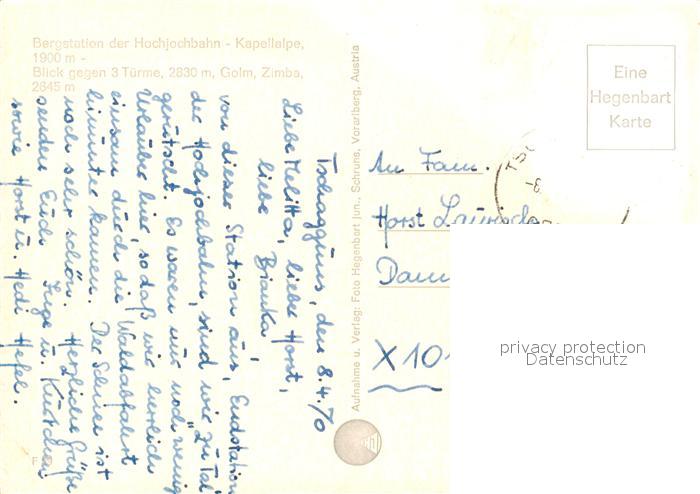 Bergstation der Hochjochbahn - Kapellalpe,
1900 m -
Blick gegen 3 Türme, 2830 m, Golm, Zimba,
2645 m
Tschagguns, den 8.4.70
Liebe Melitta, lieber Horst,
liebe Bianka!
von dieser Station aus, Endstation
der Hochjochbahn, sind wir zu Tal
gerutscht. Es waren nur noch wenig
Urlauber hier, so daß wir herrlich
einsam durch die Waldabfahrt
hinunter kamen. Der Schnee ist
noch sehr schön. Herzliche Grüße
senden Euch Inge u.
sowie Horst u. Hedi Hefel.
Aufnahme u. Verlag: Foto Hegenbart jun., Schruns, Vorarlberg, Austria
Eine
Hegenbart
Karte
An Fam.
Horst
X 10
privacy protection
Datenschutz